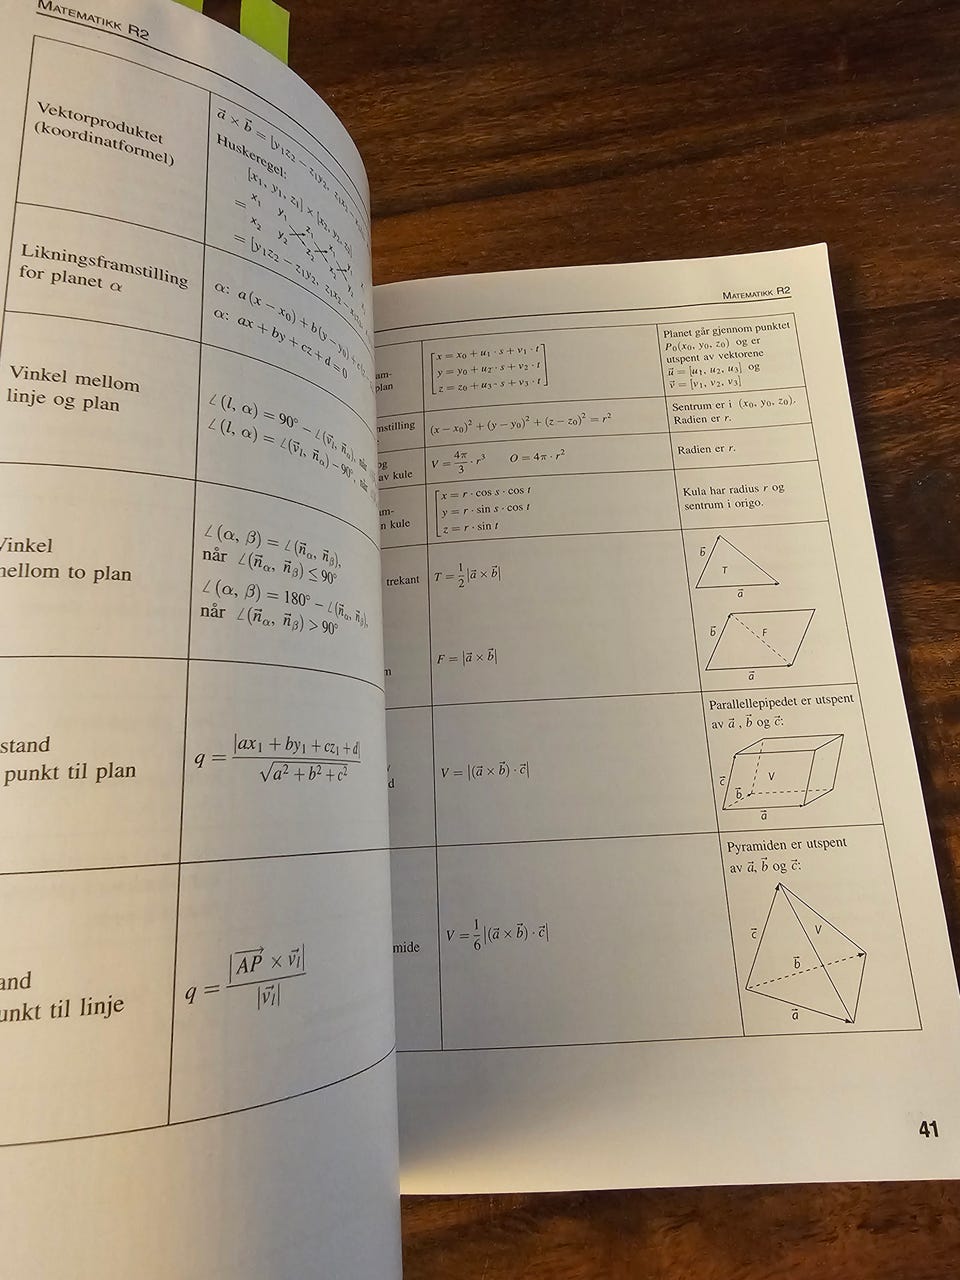 MATEMATIKK R2
Vektorproduktet
(koordinatformel)
a⃗ × b⃗ = [y₁z₂ − z₁y₂, z₁x₂ −
Huskeregel:
[x₁, y₁, z₁] × [x₂, y₂, z₂]
= x₁ y₁ z₁ x₁ y₁
x₂ y₂ z₂ x₂ y₂
= [y₁z₂ − z₁y₂, z₁x₂ −
Likningsframstilling
for planet α
α: a(x − x₀) + b(y − y₀) +
α: ax + by + cz + d = 0
Vinkel mellom
linje og plan
∠(l, α) = 90° − ∠(v⃗ₗ, n⃗α), når
∠(l, α) = ∠(v⃗ₗ, n⃗α) − 90°, når
Vinkel
mellom to plan
∠(α, β) = ∠(n⃗α, n⃗β),
når ∠(n⃗α, n⃗β) ≤ 90°
∠(α, β) = 180° − ∠(n⃗α, n⃗β),
når ∠(n⃗α, n⃗β) > 90°
stand
punkt til plan
q = |ax₁ + by₁ + cz₁ + d| / √(a² + b² + c²)
and
unkt til linje
q = |AP⃗ × v⃗ₗ| / |v⃗ₗ|
MATEMATIKK R2
am-
plan
x = x₀ + u₁ · s + v₁ · t
y = y₀ + u₂ · s + v₂ · t
z = z₀ + u₃ · s + v₃ · t
Planet går gjennom punktet
P₀(x₀, y₀, z₀) og er
utspent av vektorene
u⃗ = [u₁, u₂, u₃] og
v⃗ = [v₁, v₂, v₃]
mstilling
(x − x₀)² + (y − y₀)² + (z − z₀)² = r²
Sentrum er i (x₀, y₀, z₀).
Radien er r.
og
av kule
V = 4π/3 · r³ O = 4π · r²
Radien er r.
am-
n kule
x = r · cos s · cos t
y = r · sin s · cos t
z = r · sin t
Kula har radius r og
sentrum i origo.
trekant
T = 1/2 |a⃗ × b⃗|
b⃗
T
a⃗
m
F = |a⃗ × b⃗|
b⃗
F
a⃗
d
V = |(a⃗ × b⃗) · c⃗|
Parallellepipedet er utspent
av a⃗, b⃗ og c⃗:
c⃗
V
b⃗
a⃗
mide
V = 1/6 |(a⃗ × b⃗) · c⃗|
Pyramiden er utspent
av a⃗, b⃗ og c⃗:
c⃗
V
b⃗
a⃗
41